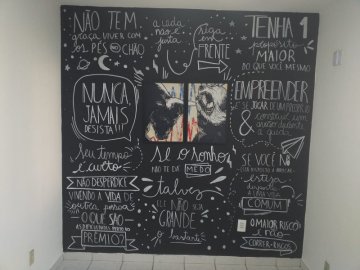 NÃO TEM
graça VIVER COM
OS PÉS NO CHÃO
a vida
não é
justa
siga
em
FRENTE
TENHA 1
propósito
MAIOR
DO QUE VOCÊ MESMO
NUNCA,
JAMAIS
DESISTA!!!
EMPREENDER
É SE JOGAR DE UM PRECIPÍCIO
& construir um
durante
a queda
seu tempo
é curto
NÃO DESPERDICE
VIVENDO A VIDA DE
outra pessoa
O QUE SÃO
PRÊMIO?
se o sonho
NÃO TE DÁ MEDO
talvez
ELE NÃO SEJA
GRANDE
o bastante
SE VOCÊ NÃO
esteja
disposto
a uma vida
COMUM!
O MAIOR RISCO
é não
CORRER RISCOS